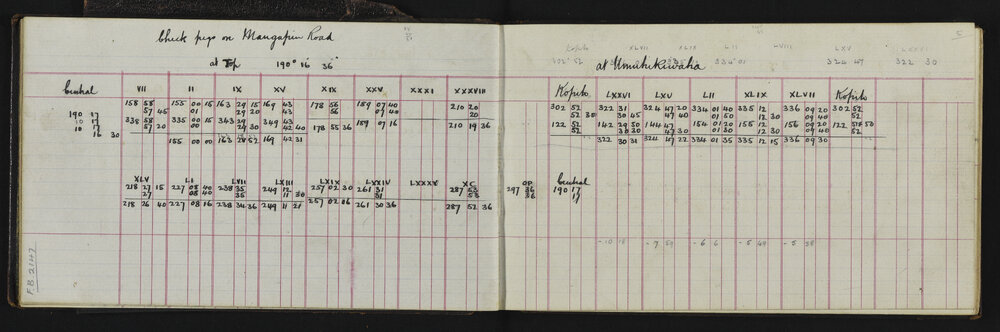 Check pegs on Mangapiu Road
at Top 190° 16 36"
Central VII II IX XV XIX XXV XXXI XXXVIII
158 58 155 00 15 163 29 15 169 43 178 56 189 07 40 210 20
57 45 01 29 20 43 56 07 40 20
190 17 338 58 335 00 15 343 29 349 43 178 55 36 189 07 16 210 19 36
17 57 20 00 29 30 42 40
10 17
16 30
155 00 00 163 28 52 169 42 31
XLV LI LVII LXIII LXIX LXXIV LXXXV XC
218 27 15 227 08 40 238 35 249 12 257 02 30 261 31 287 53
27 08 40 35 11 30 31 53
218 26 40 227 08 16 238 34 36 249 11 21 257 02 06 261 30 36 287 52 36
F.B. 2147
5
Koputo XLVII XLIX LII LVIII LXV LXXVI
302° 52 334° 01 324 47 322 30
at Umutukiwaha
Koputo LXXVI LXV LII XLIX XLVII Koputo
302 52 322 31 324 47 20 334 01 40 335 12 336 09 20 302 52
52 30 30 45 47 40 01 50 12 30 09 40 52
122 52 142 29 50 144 47 154 01 20 155 12 156 09 00 122 52
52 30 30 47 30 01 30 12 30 09 40 52
322 30 31 324 47 22 334 01 35 335 12 15 336 09 30
OP Central
297 36 190 17
36 17
36
- 10 18 - 7 59 - 6 6 - 5 49 - 5 58